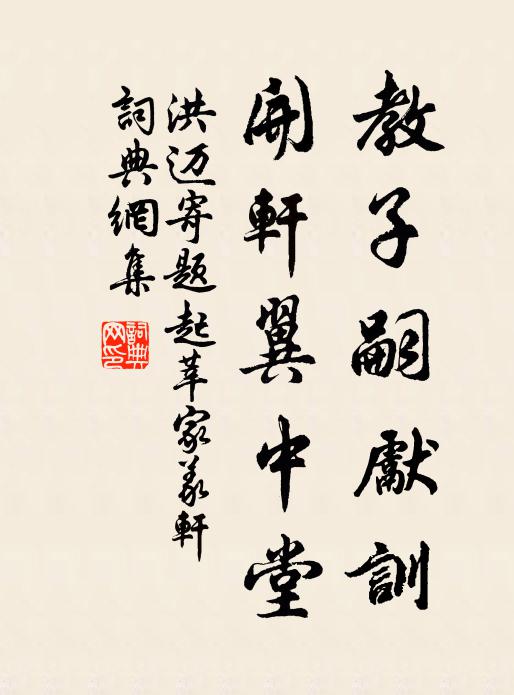 教子嗣獻訓
開軒翼中堂
洪迈寄题起莘家義軒
詞典網集
詞典網印